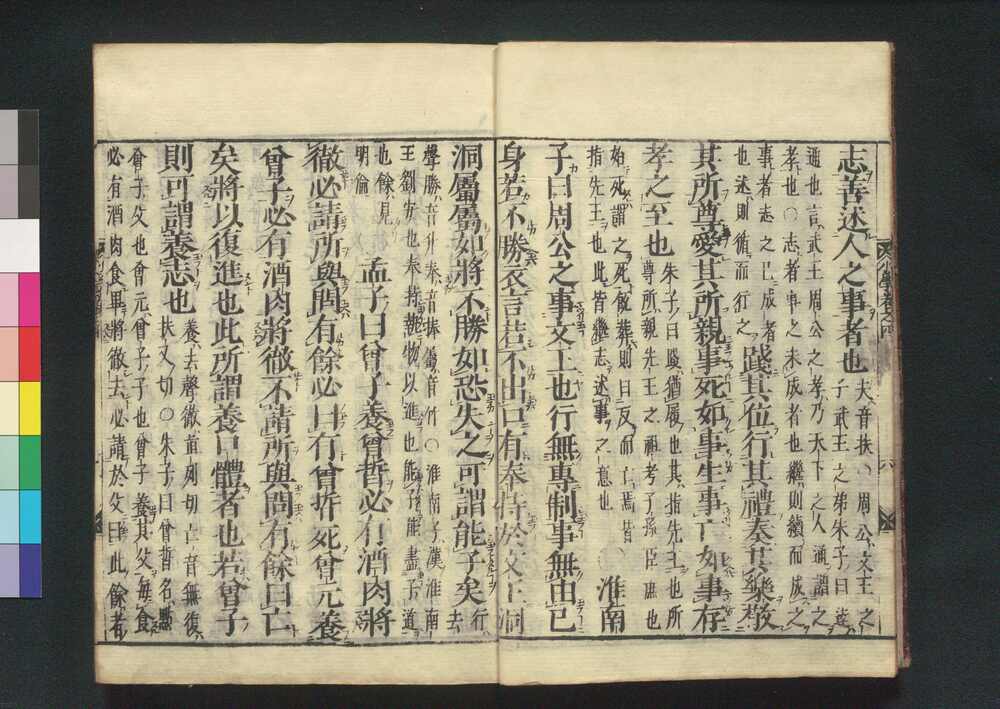 志善述人之事者也夫音扶○周公文王之
子武王之弟朱子曰達
通也言武王周公之孝乃天下之人通謂之
孝也○志者事之未成者也繼則續而成之
事者志之已成者
也述則循而行之踐其位行其禮奏其樂敬
其所尊愛其所親事死如事生事亡如事存
孝之至也朱子曰踐猶履也其指先王也所
尊所親先王之祖考子孫臣庶也
始死謂之死旣葬則曰反而亡焉皆
指先王也此皆繼志述事之意也淮南
子曰周公之事文王也行無專制事無由已
身若不勝衣言若不出口有奉持於文王洞
洞屬屬如將不勝如恐失之可謂能子矣行去
聲勝音升奉音捧屬音竹○淮南子漢淮南
王劉安也奉持執物以進也能子能盡子道
也餘見
明倫孟子曰曾子養曾晳必有酒肉將
徹必請所與問有餘必曰有曾晳死曾元養
曾子必有酒肉將徹不請所與問有餘曰亡
矣將以復進也此所謂養口體者也若曾子
則可謂養志也養去聲徹直列切亡音無復
扶又切○朱子曰曾晳名點
曾子父也曾元曾子子也曾子養其父每食
必有酒肉食畢將徹去必請於父曰此餘者